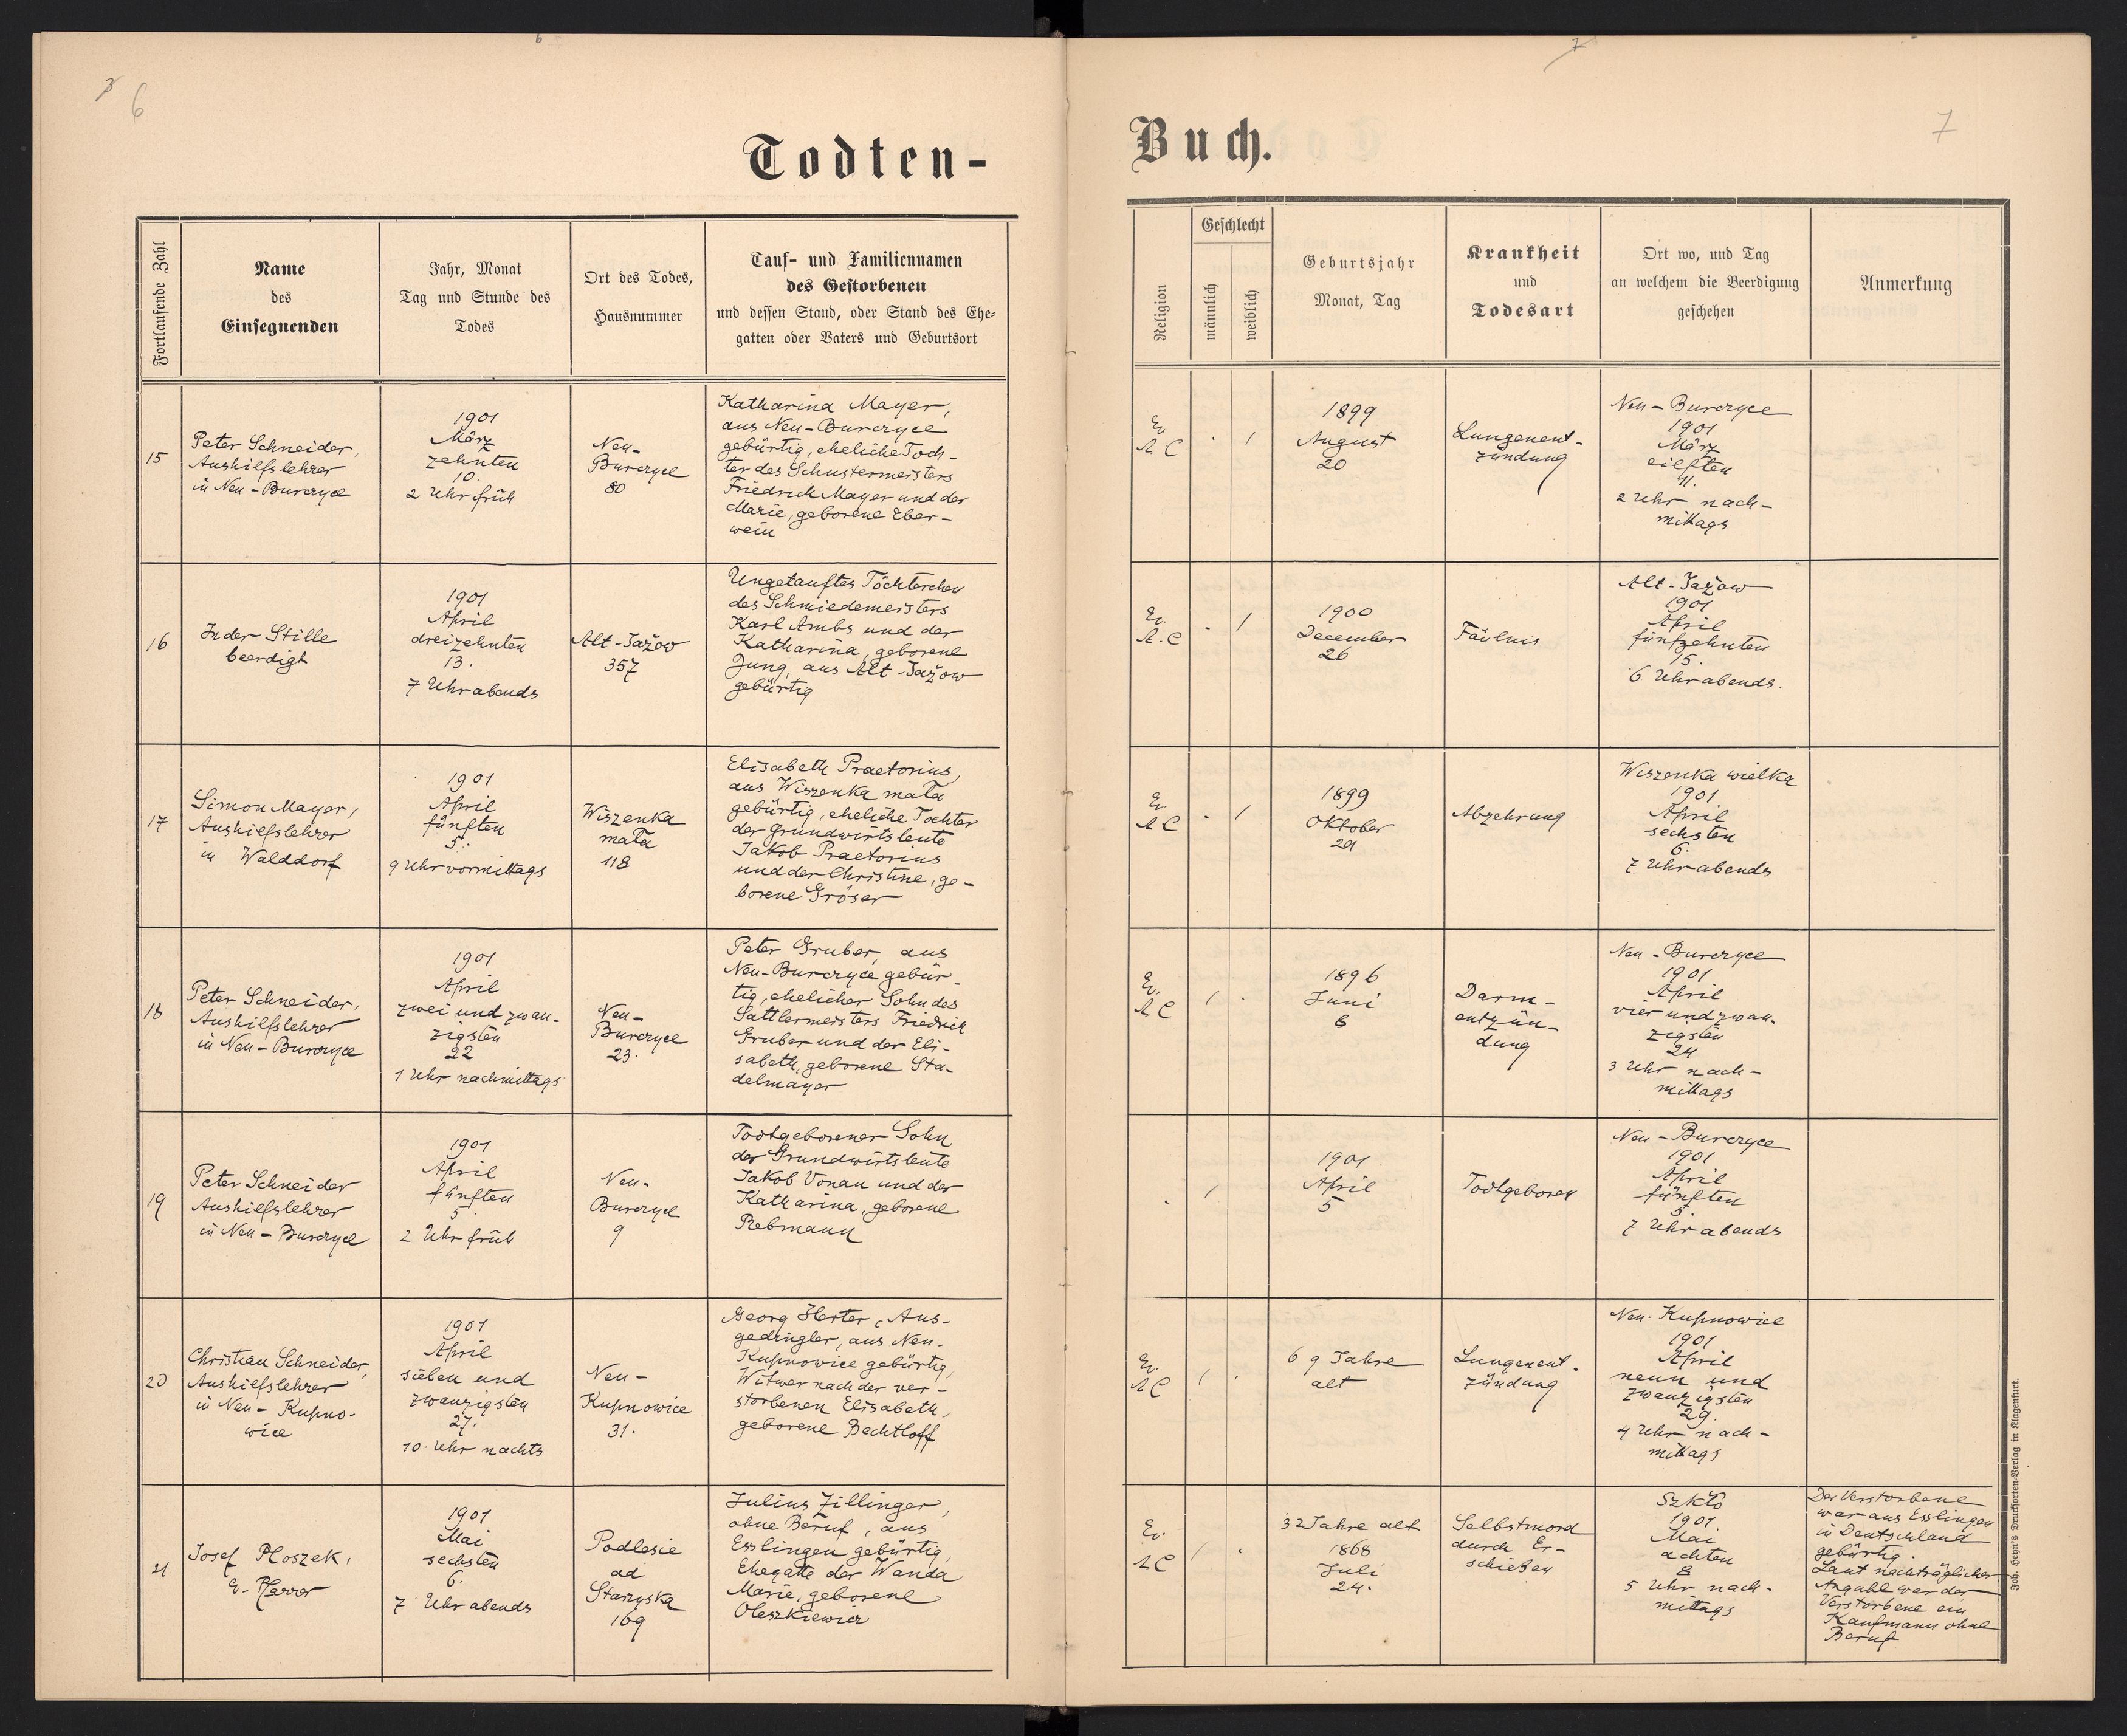 6
7
3
6
7
Todten-
Buch.
Fortlaufende Zahl
Name
des
Einsegnenden
Jahr, Monat
Tag und Stunde des
Todes
Ort des Todes,
Hausnummer
Tauf- und Familiennamen
des Gestorbenen
und dessen Stand, oder Stand des Ehe=
gatten oder Vaters und Geburtsort
Religion
Geschlecht
männlich
weiblich
Geburtsjahr
Monat, Tag
Krankheit
und
Todesart
Ort wo, und Tag
an welchem die Beerdigung
geschehen
Anmerkung
15
Peter Schneider,
Aushilfslehrer
in Neu-Burczyce
1901
März
zehnten
10.
2 Uhr früh
Neu-
Burczyce
80
Katharina Mayer,
aus Neu-Burczyce
gebürtig, eheliche Toch-
ter des Schustermeisters
Friedrich Mayer und der
Marie, geborene Eber-
wein
Ev.
A C
. 1
1899
August
20
Lungenent-
zündung
Neu-Burczyce
1901
März
eilften
11.
2 Uhr nach-
mittags
16
In der Stille
beerdigt
1901
April
dreizehnten
13.
7 Uhr abends
Alt-Jažow
357
Ungetauftes Töchterchen
des Schmiedemeisters
Karl Ambs und der
Katharina, geborene
Jung, aus Alt-Jažow
gebürtig
Ev.
A. C
. 1
1900
December
26
Fäulnis
Alt-Jažow
1901
April
fünfzehnten
15.
6 Uhr abends.
17
Simon Mayer,
Aushilfslehrer
in Walddorf
1901
April
fünften
5.
9 Uhr vormittags
Wiszenka
mała
118
Elisabeth Praetorius,
aus Wiszenka mała
gebürtig, eheliche Tochter
der Grundwirtsleute
Jakob Praetorius
und der Christine, ge-
borene Gröser
Ev.
A C
. 1
1899
Oktober
29
Abzehrung
Wiszenka wielka
1901
April
sechsten
6.
7 Uhr abends
18
Peter Schneider,
Aushilfslehrer
in Neu-Burczyce
1901
April
zwei und zwan-
zigsten
22
1 Uhr nachmittags
Neu-
Burczyce
23.
Peter Gruber, aus
Neu-Burczyce gebür-
tig, ehelicher Sohn des
Sattlermeisters Friedrich
Gruber und der Eli-
sabeth, geborene Sta-
delmayer
Ev.
A C
1 .
1896
Juni
8
Darm-
entzün-
dung
Neu-Burczyce
1901
April
vier und zwan-
zigsten
24
3 Uhr nach-
mittags
19
Peter Schneider
Aushilfslehrer
in Neu-Burczyce
1901
April
fünften
5.
2 Uhr früh
Neu-
Burczyce
9
Todtgeborener Sohn
der Grundwirtsleute
Jakob Vonau und der
Katharina, geborene
Rebmann
. 1
1901
April
5
Todtgeboren
Neu-Burczyce
1901
April
fünften
5.
7 Uhr abends
20
Christian Schneider,
Aushilfslehrer
in Neu-Kupno-
wice
1901
April
sieben und
zwanzigsten
27.
10 Uhr nachts
Neu-
Kupnowice
31.
Georg Herter, Aus-
gedingler, aus Neu-
Kupnowice gebürtig,
Witwer nach der ver-
storbenen Elisabeth,
geborene Bechtloff
Ev.
A C
1 .
69 Jahre
alt
Lungenent-
zündung
Neu-Kupnowice
1901
April
neun und
zwanzigsten
29.
4 Uhr nach-
mittags
21
Josef Ploszek,
ev. Pfarrer
1901
Mai
sechsten
6.
7 Uhr abends
Podlesie
ad
Starzyska
169
Julius Zillinger,
ohne Beruf, aus
Esslingen gebürtig,
Ehegatte der Wanda
Marie, geborene
Oleszkiewicz
Ev.
A C
1 .
32 Jahre alt
1868
Juli
24.
Selbstmord
durch Er-
schießen
Szkło
1901
Mai
achten
8
5 Uhr nach-
mittags
Der Verstorbene
war aus Esslingen
in Deutschland
gebürtig.
Laut nachträglicher
Angabe war der
Verstorbene ein
Kaufmann ohne
Beruf
Joh. Heyn's Drucksorten-Verlag in Klagenfurt.